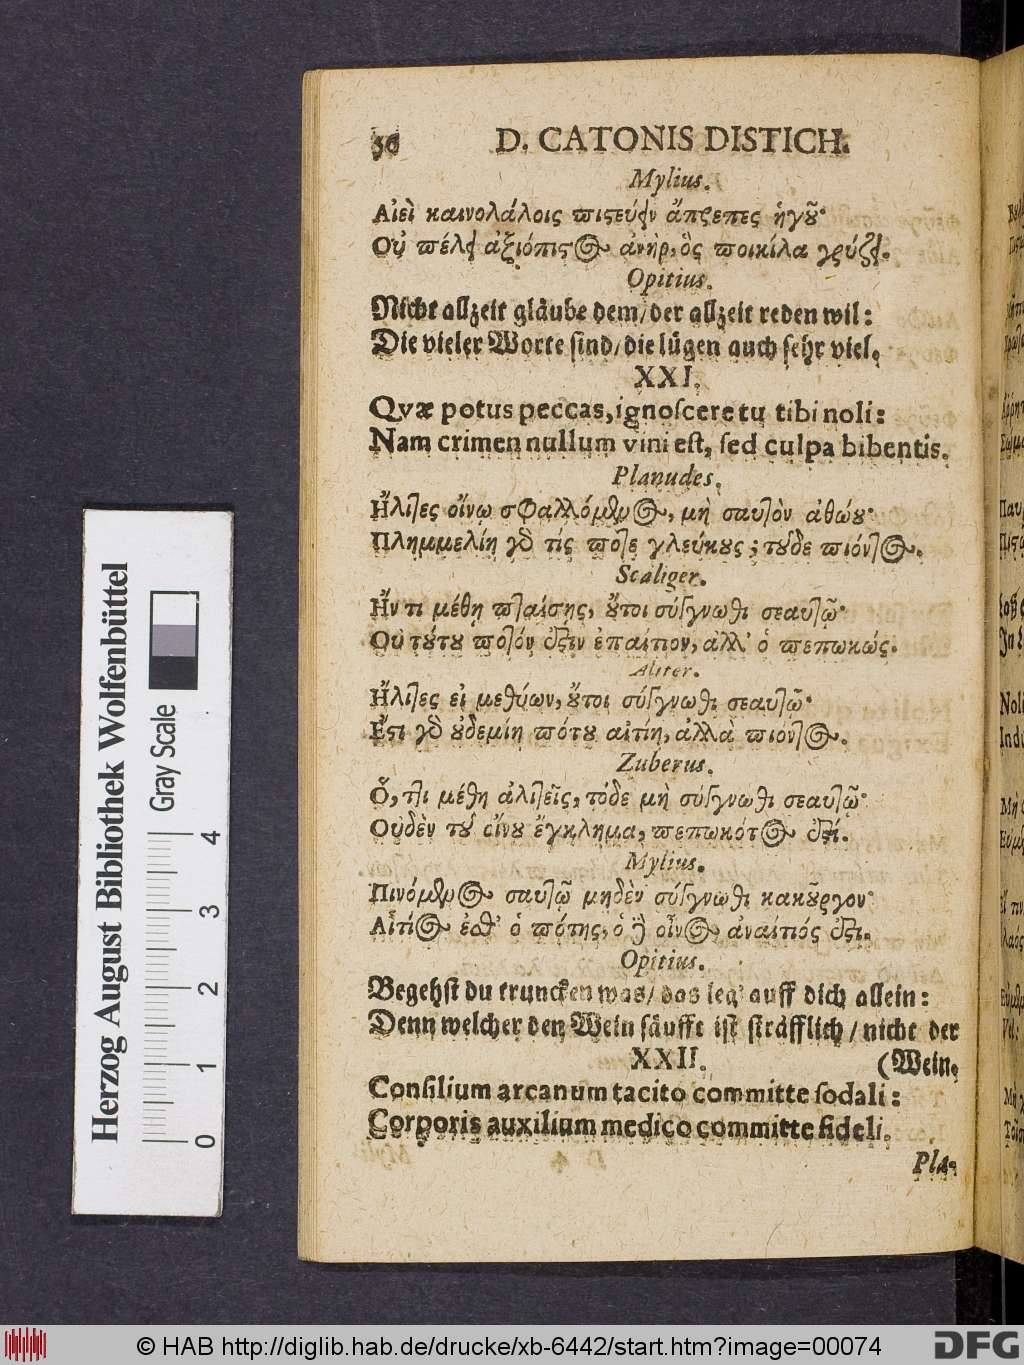 56 D. CATONIS DISTICH.
Mylius.
Αἰεὶ καινολάλοις πιστεύειν ἄπρεπες ἡγοῦ·
Οὐ πέλει ἀξιόπιστος ἀνὴρ, ὃς ποικίλα γρύζει.
Opitius.
Nicht allzeit gläube dem/ der allzeit reden wil:
Die vieler Worte sind/ die lügen auch sehr viel.
XXI.
Qvæ potus peccas, ignoſcere tu tibi noli:
Nam crimen nullum vini eſt, ſed culpa bibentis.
Planudes.
Ἤλιτες οἴνῳ σφαλλόμενος, μὴ σαυτὸν ἀθώου·
Πλημμελίη γὰρ τίς ποτε γλεύκους; τοῦδε πιόντος.
Scaliger.
Ἤν τι μέθη πταίσης, οὔτοι σύγγνωθι σεαυτῷ·
Οὐ τούτου ποτόν ἐστιν ἐπαίτιον, ἀλλ' ὁ πεπωκώς.
Aliter.
Ἤλιτες εἰ μεθύων, οὔτοι σύγγνωθι σεαυτῷ·
Ἔστι γὰρ οὐδεμίη πότου αἰτίη, ἀλλὰ πιόντος.
Zuberus.
Ὅ, ττι μέθη ἀλιτεῖς, τόδε μὴ σύγγνωθι σεαυτῷ·
Οὐδὲν τοῦ οἴνου ἔγκλημα, πεπωκότος ἐστί.
Mylius.
Πινόμενος σαυτῷ μηδὲν σύγγνωθι κακοῦργον·
Αἴτιός ἐσθ' ὁ πότης, ὁ δὲ οἶνος ἀναίτιός ἐστι.
Opitius.
Begehst du truncken was/ das leg' auff dich allein:
Denn welcher den Wein säufft ist sträfflich/ nicht der
XXII. (Wein.
Conſilium arcanum tacito committe ſodali:
Corporis auxilium medico committe fideli.
Pla-
Herzog August Bibliothek Wolfenbüttel
Gray Scale
0 1 2 3 4
© HAB http://diglib.hab.de/drucke/xb-6442/start.htm?image=00074
DFG